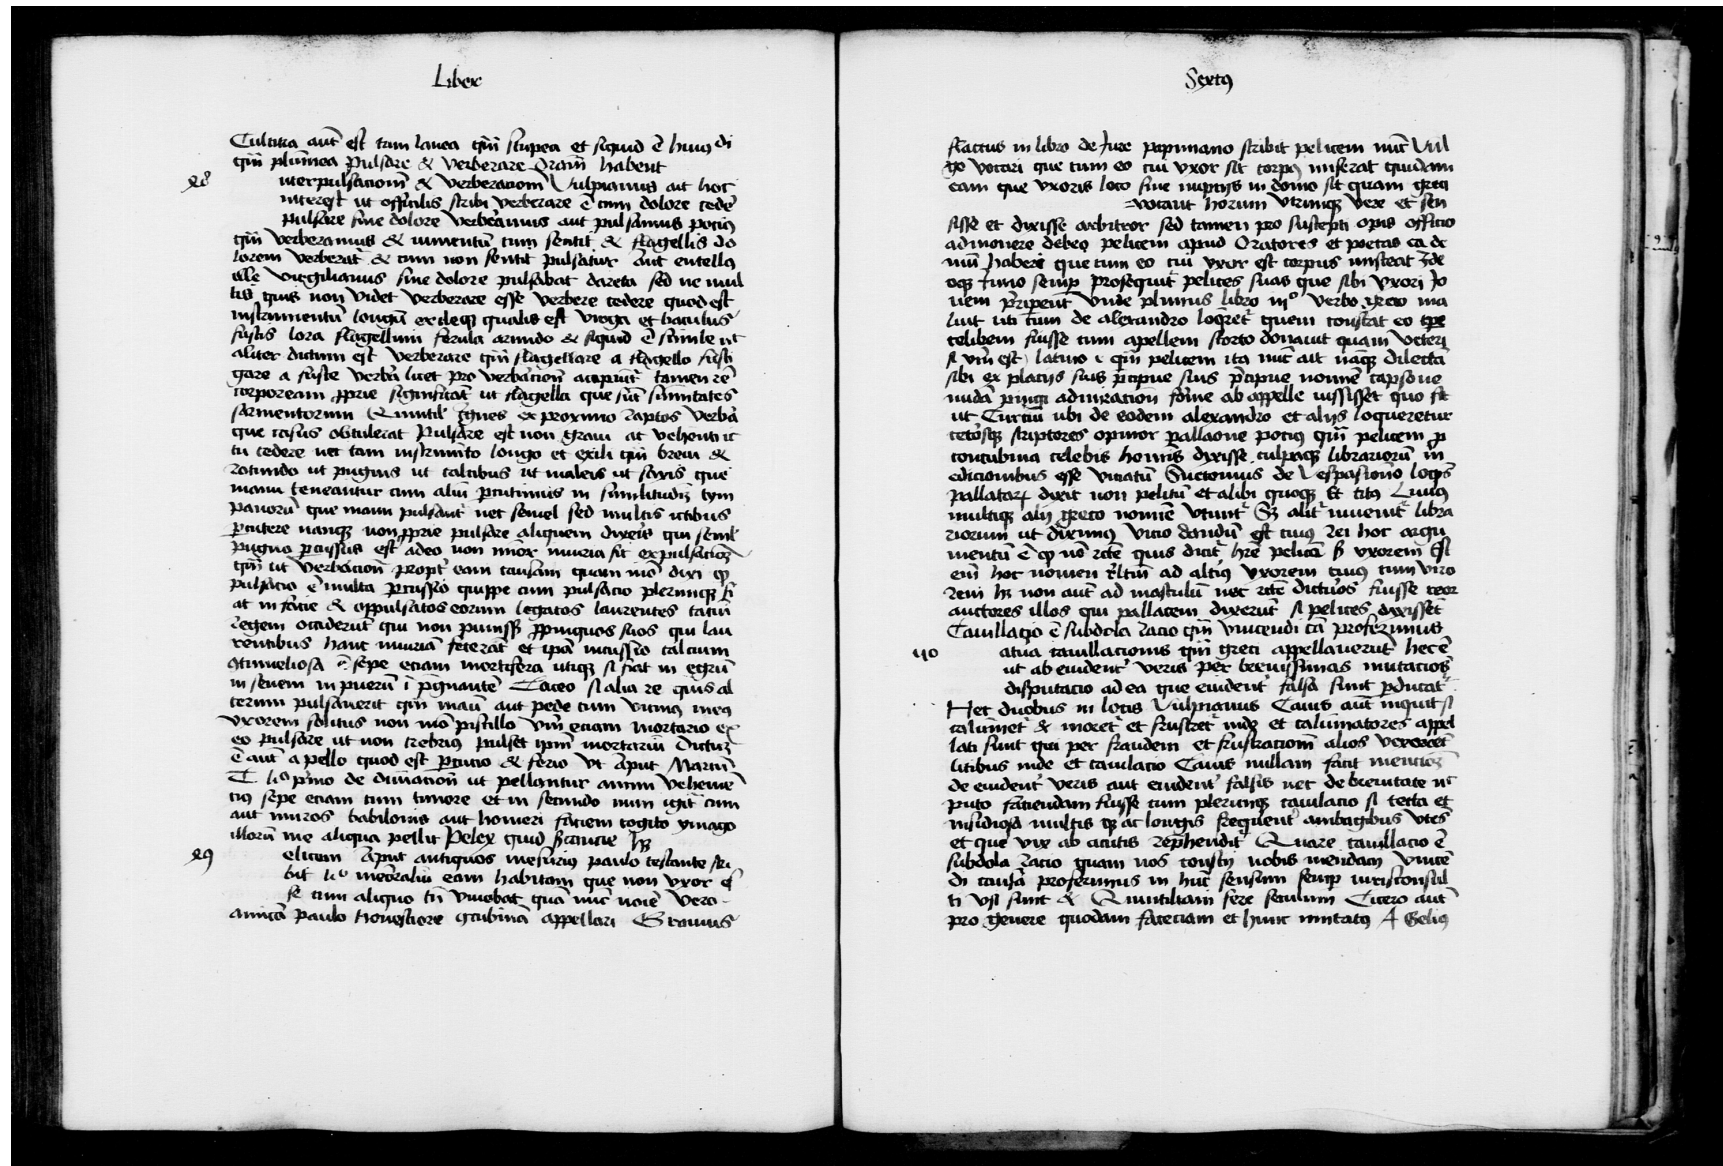 Liber
Culcitra aut est tam lanea q̄m stupea et siquid ē huiꝰdi
q̄m plumea Pulsare & verberare Qram habent
28
nter pulsacionē & verberacionē Vulpianus ait hoc
interest ut offitilis scribi verberare ē cum dolore cedē
pulsare sine dolore verberamus aut pulsamus potiꝰ
q̄m verberamus & iumentū cum sentit & flagellis do
lorem verberat̄ & cum non sentit pulsatur Aut entellꝰ
ille virgilianus sine dolore pulsabat dareta sed ne mul
tis quis non videt verberare esse verbere cedere quod est
instrumentū longū ex ileqꝫ qualis est virga et baculus
fustis lora flagellum ferula arundo & siquid ē simile nc
aliter dictum est verberare q̄m flagellare a flagello fusti
gare a fuste verbā licet pro verbacion accipiūt tamen rē
corpoream pprie significāt ut flagella que sūt sūmitates
sarmentorum Quintil Ignes ex proximo raptos verbā
que casus obtulerat Pulsare est non graui at vehenti ic
tu cedere nec tam instrumēto longo et exili q̄m breui &
rotundo ut pugnis ut calcibus ut maleis ut saxis que
manu teneantur cum aliū pcutimus in similitudiꝫ tym
panorū que manu pulsant̄ nec semel sed multis ictibus
pcutere nanqꝫ non pprie pulsare aliquem dixeris qui semˡ
pugno pcussus est adeo non mīor iniuria fit ex pulsacioꝫ
q̄m ut verbacion propt̄ eam causam quam mō dixi qꝫ
pulsacio ē multa pcussio quippe cum pulsacio plerunqꝫ fi
at in facie & oppulsatos eorum legatos laurentes tatiū
regem occiderūt qui non punissꝫ ppinquos suos qui lau
rentibus hanc iniuriā fecerāt et ipā incussio calcium
gtumeliosa ē sepe eciam mortifera utiqꝫ si fiat in egrū
in senem in puerū ī pgnantē Taceo si alia re quis al
terum pulsauerit q̄m manū aut pede cum vicinꝰ meꝰ
vxorem solitus non mō pistillo vm̄ eciam mortario ex
eo pulsare ut non crebriꝰ pulset ip̄m mortariū Dictuꝫ
ē autē a pello quod est pcutio & ferio Vt aput Marcū
T liº pimo de diuinacion ut pellantur animi vehemē
tiꝰ sepe eciam cum timore et in secundo num igit̄ cum
aut muros babilonis aut homeri faciem cogito ymago
illorū me aliqua pellit Pelex quid s̄cauie hꝫ
29
elicem Aput antiquos mesuriꝰ paulo testante scri
bit liº memoraliū eam habitam que non vxor eſ
se cum aliquo tn̄ viuebat quā nūc noīe vero
amicā paulo honestiore gcubinā appellari Granius
Sextꝰ
flaccus in libro de Jure papiniano scribit pelicem nūc Vul
go vocari que cum eo cui vxor sit corpꝰ miserat quidam
eam que vxoris loco sine nuptijs in domo sit quam greci
=vocant horum vtrunqꝫ vere et sen
sisse et dixisse arbitror sed tamen pro suscepti opis officio
admonere debeo pelicem apud Oratores et poetas ea de
mū haberi que cum eo cui vxor est corpus misceat Ide
oqꝫ iuno semp prosequit̄ pelices suas que sibi vxori Jo
uem pripeūt Vnde plinius libro mº verbo greco ma
luit uti cum de alexandro loqret̄ quem constat eo tpe
celibem fuisse cum apellem scorto donauit quam veteri
si vm̄ est latino i q̄m pelicem ita nūc ait nāqꝫ dilectā
sibi ex placijs suis pcipue suis pcipue nomīe capsdne
nudā pingi admiracion forme ab appelle iussisset quo fit
ut Curciū ubi de eodem alexandro et alijs loqueretur
ceterosqꝫ scriptores opinor Pallaone potiꝰ q̄m pelicem p
concubina celebis homīs dixisse culpaqꝫ librariorū in
edicionibus esse viciatū Suetonius de Vespasiono loqꝫ
pallacaꝝ dixit non pelicū et alibi quoqꝫ Et titꝰ Liuiꝰ
multiqꝫ alij greco nomīe vtunt̄ Sꝫ alit̄ inuenit̄ libra
riorum ut diximꝰ vicio dandū est cuiꝰ rei hoc argu
mentū ē qꝫ nō rcte quis dicit̄ hr̄e pelicē si vxorem Est
em̄ hoc nomen rltm̄ ad altiꝰ vxorem cuiꝰ cum viro
rem hꝫ non aut̄ ad masculū nec rcte dicturos fuisse reor
auctores illos qui pallacem dixerūt si pelices dixisset
Cauillacio ē subdola racio q̄m vincendi cā proferimus
40
atua cauillacionis q̄m greci appellauerūt hec ē
ut ab euident̄ veris per breuissimas mutacioꝫ
disputacio ad ea que euident̄ falsa sunt pducat̄
Hec duobus in locis Vulpianus Caius aut̄ inquit si
calūniet̄ & moret̄ et frustret̄ inde et calūniatores appel
lati sunt qui per fraudem et frustracionē alios vexarēt
litibus inde et cauilacio Caius nullam facit mencioꝫ
de euident̄ veris aut euident̄ falsis nec de breuitate uc
puto faciendam fuisse cum plerunqꝫ cauilacio si tecta et
insidiosa multis qꝫ ac longis frequent̄ ambagibus vtēs
et que vix ab acutis rephendit̄ Quare cauillacio ē
subdola racio quam nos conscij nobis mendacij vincē
di causa proferimus in hūc sensum semp iurisconsul
ti vsi sunt & Quintiliani fere seculum Cicero aut̄
pro genere quodam faceciam et hunc imitatꝰ A Geliꝰ